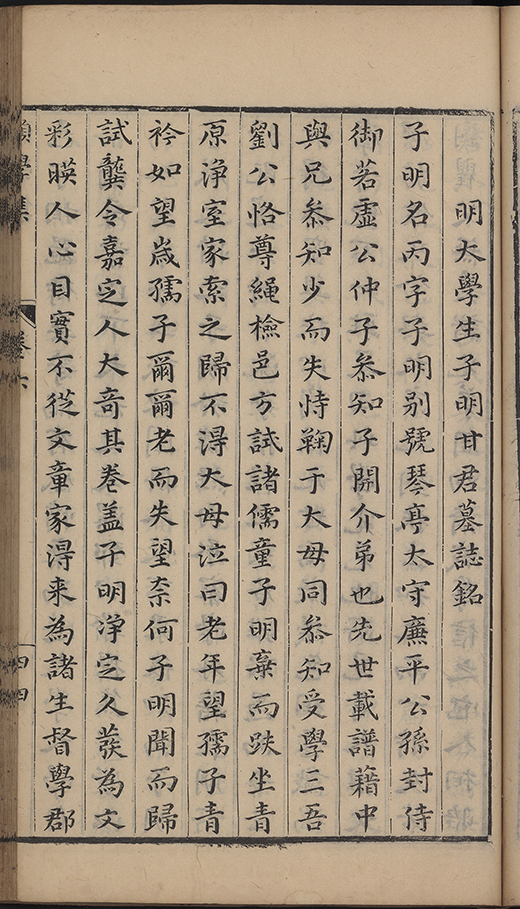 明大學生子明甘君墓誌銘
子明名丙字子明别號琴亭太守廉平公孫封侍
御若虛公仲子叅知子開介弟也先世載譜藉中
與兄叅知少而失恃鞠于大母同叅知受學三吾
劉公恪尊繩檢邑方試諸儒童子明棄而趺坐青
原淨室家索之歸不得大母泣曰老年望孺子青
衿如望嵗孺子爾爾老而失望柰何子明聞而歸
試龔令嘉定人大竒其卷盖子明淨定久發為文
彩暎人心目實不從文章家得来為諸生督學郡
學集
卷六
四四